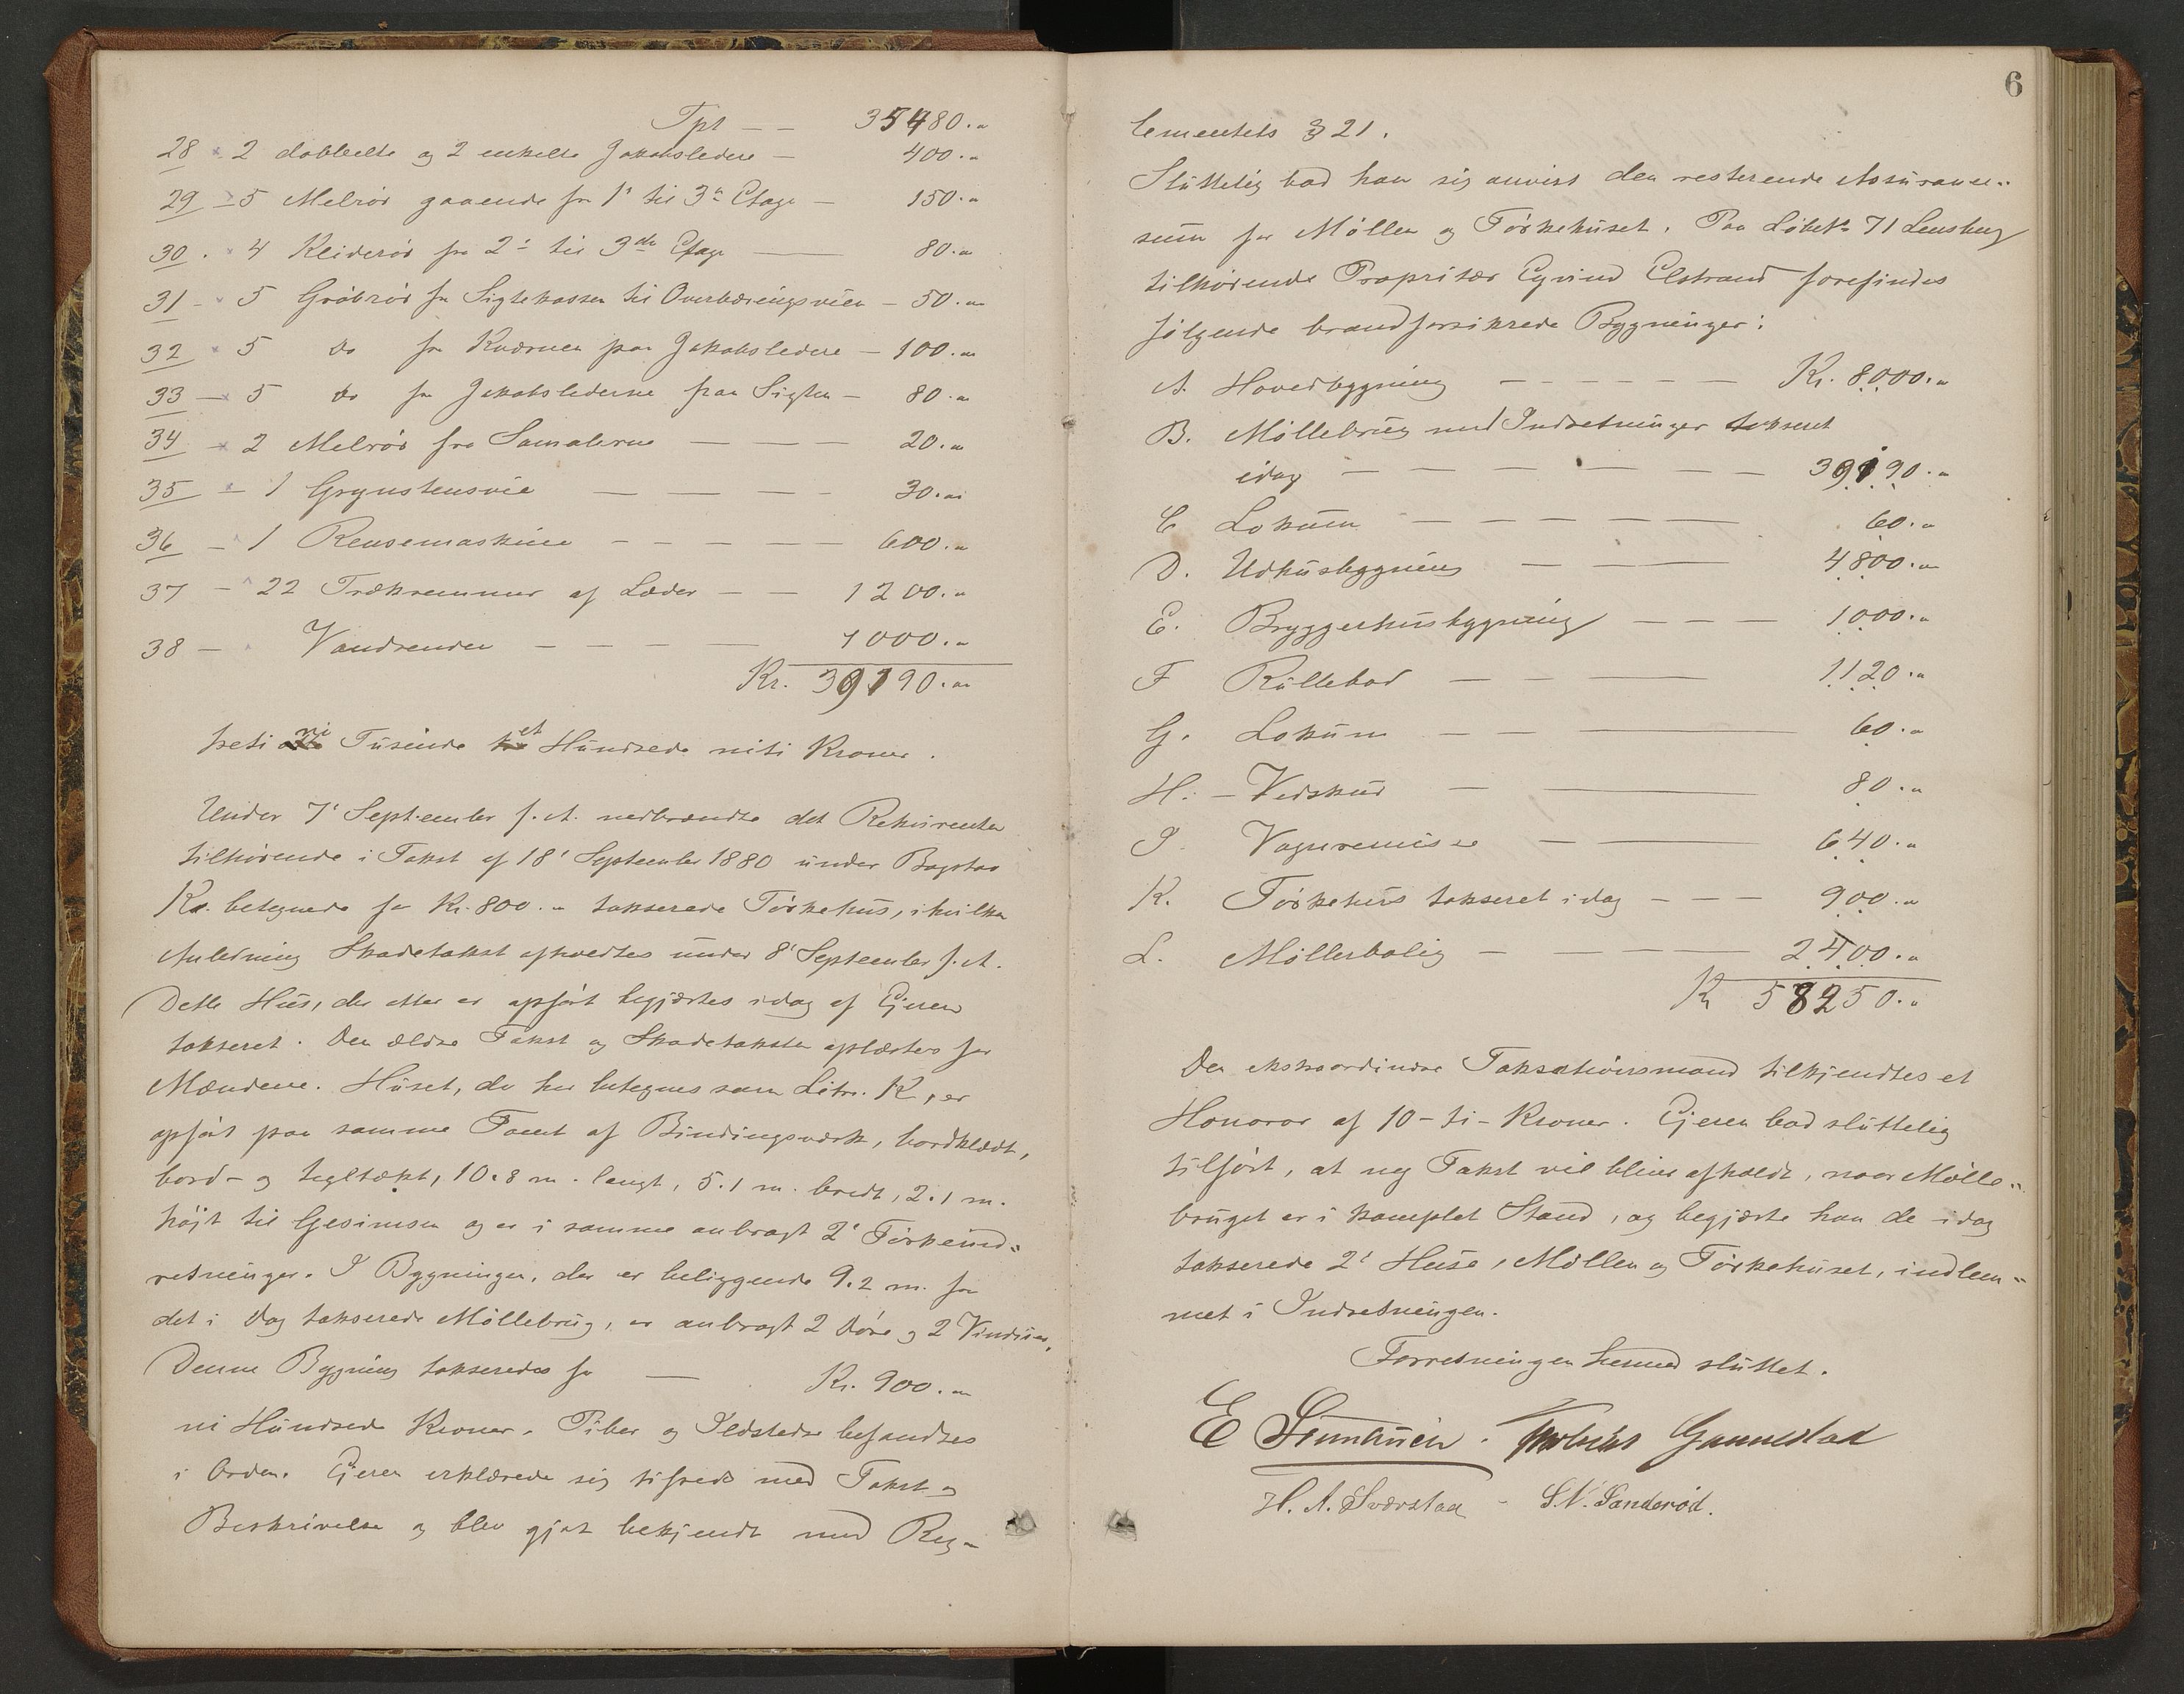 Tpt — — 35480."
28 2 dobbelte og 2 enkelte Jakobsledere — 400."
29 5 Melrör gaaende fra 1' til 3' Etage — 150."
30. 4 Kliderör fra 2' til 3de Etage — 80."
31 - 5 Gröbrör fra Sigtekassen til — 50."
32 5 do fra Kværnen paa Jakobsledere — 100."
33 — 5 do fra Jakobslederne paa Sigten — 80."
34 - 2 Melrör fra — — — 20."
35 - 1 — — — — 30."
36 - 1 Rensemaskine — — — — — 600."
37 - 22 Trækremmer af Læder — — 1200."
38 — Vandrenden — — — — 1000."
Kr. 39190."
treti ni Tusinde et Hundrede niti Kroner.
Under 7' September f. A. nedbrændte det Rekvirenten
tilhörende i Takst af 18' September 1880 under Bogstav
K. betegnede for Kr. 800." takserede Törkehus, i hvilken
Anledning Skadetakst afholdtes under 8' September f. A.
Dette Hus, der atter er opfört begjærtes idag af Ejeren
takseret. Den ældre Takst og Skadetaksten oplæstes for
Mændene. Huset, der her betegnes som Litr. K, er
opfört paa samme Tomt af Bindingsværk, bordklædt,
bord- og tegltækt, 10.8 m. langt, 5.1 m. bredt, 2.1 m.
höjt til Gesimsen og er i samme anbragt 2' Törkeind-
retninger. I Bygningen, der er beliggende 9.2 m. fra
det i Dag takserede Möllebrug, er anbragt 2 Döre og 2 Vinduer,
Denne Bygning takseredes for — Kr. 900."
ni Hundrede Kroner. Piber og Ildsteder befandtes
i Orden. Ejeren erklærede sig tilfreds med Takst og
Beskrivelse og blev gjort bekjendt med Reg-
6
lementets § 21.
Sluttelig bad han sig anvist den resterende Assurance-
sum for Möllen og Törkehuset. Paa LöbeNo 71 Lensberg
tilhörende Proprietær Eyvind Elstrand forefindes
fölgende brandforsikrede Bygninger:
A. Hovedbygning — — — — — Kr. 8000."
B. Möllebrug med Indretninger takseret
idag — — — — — — 39190."
C Lokum — — — — — 60."
D. Udhusbygning — — — 4800."
E. Bryggerhusbygning — — — 1000."
F Rullebod — — — 1120."
G. Lokum — — — 60."
H. — Vedskur — — 80."
I. Vognremisse — — 640."
K. Törkehus takseret idag — — — 900."
L. Möllerbolig — — — 2400."
Kr 58250."
Den ekstraordinære Taksationsmand tilkjendtes et
Honorar af 10 - ti - Kroner. Ejeren bad sluttelig
tilfört, at ny Takst vil blive afholdt, naar Mölle-
bruget er i komplet Stand, og begjærte han de idag
takserede 2' Huse, Möllen og Törkehuset, indlem-
met i Indretningen.
Forretningen hermed sluttet.
E . Gannestad
H. A. Sværstad - S. N. Sanderöd.